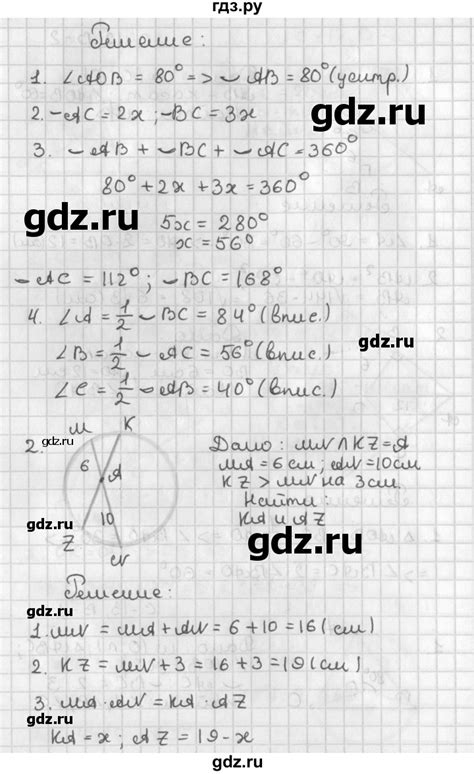 гдз.ру
Решение:
1. ∠AOB = 80° => ◡AB = 80° (центр.)
2. ◡AC = 2x ; ◡BC = 3x
gdz.ru
3. ◡AB + ◡BC + ◡AC = 360°
80° + 2x + 3x = 360°
gdz.ru
5x = 280°
x = 56°
◡AC = 112° ; ◡BC = 168°
gdz.ru
4. ∠A = 1/2 ◡BC = 84° (впис.)
∠B = 1/2 ◡AC = 56° (впис.)
∠C = 1/2 ◡AB = 40° (впис.)
gdz.ru
M K
2. Дано: MN ∧ KZ = A
gdz.ru
6 A MA = 6 см; AN = 10 см
KZ > MN на 3 см.
10 Найти:
Z KA и AZ
gdz.ru
N
gdz.ru
Решение:
gdz.ru
1. MN = MA + AN = 6 + 10 = 16 (см)
gdz.ru
2. KZ = MN + 3 = 16 + 3 = 19 (см)
3. MA · AN = KA · AZ
gdz.ru
KA = x ; AZ = 19 - x
gdz.ru